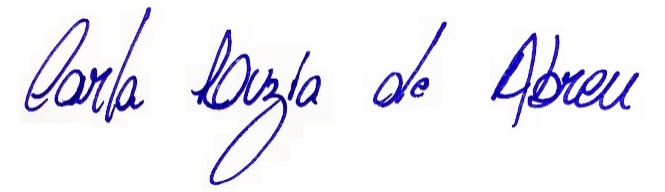 Carla Luzia de Abreu